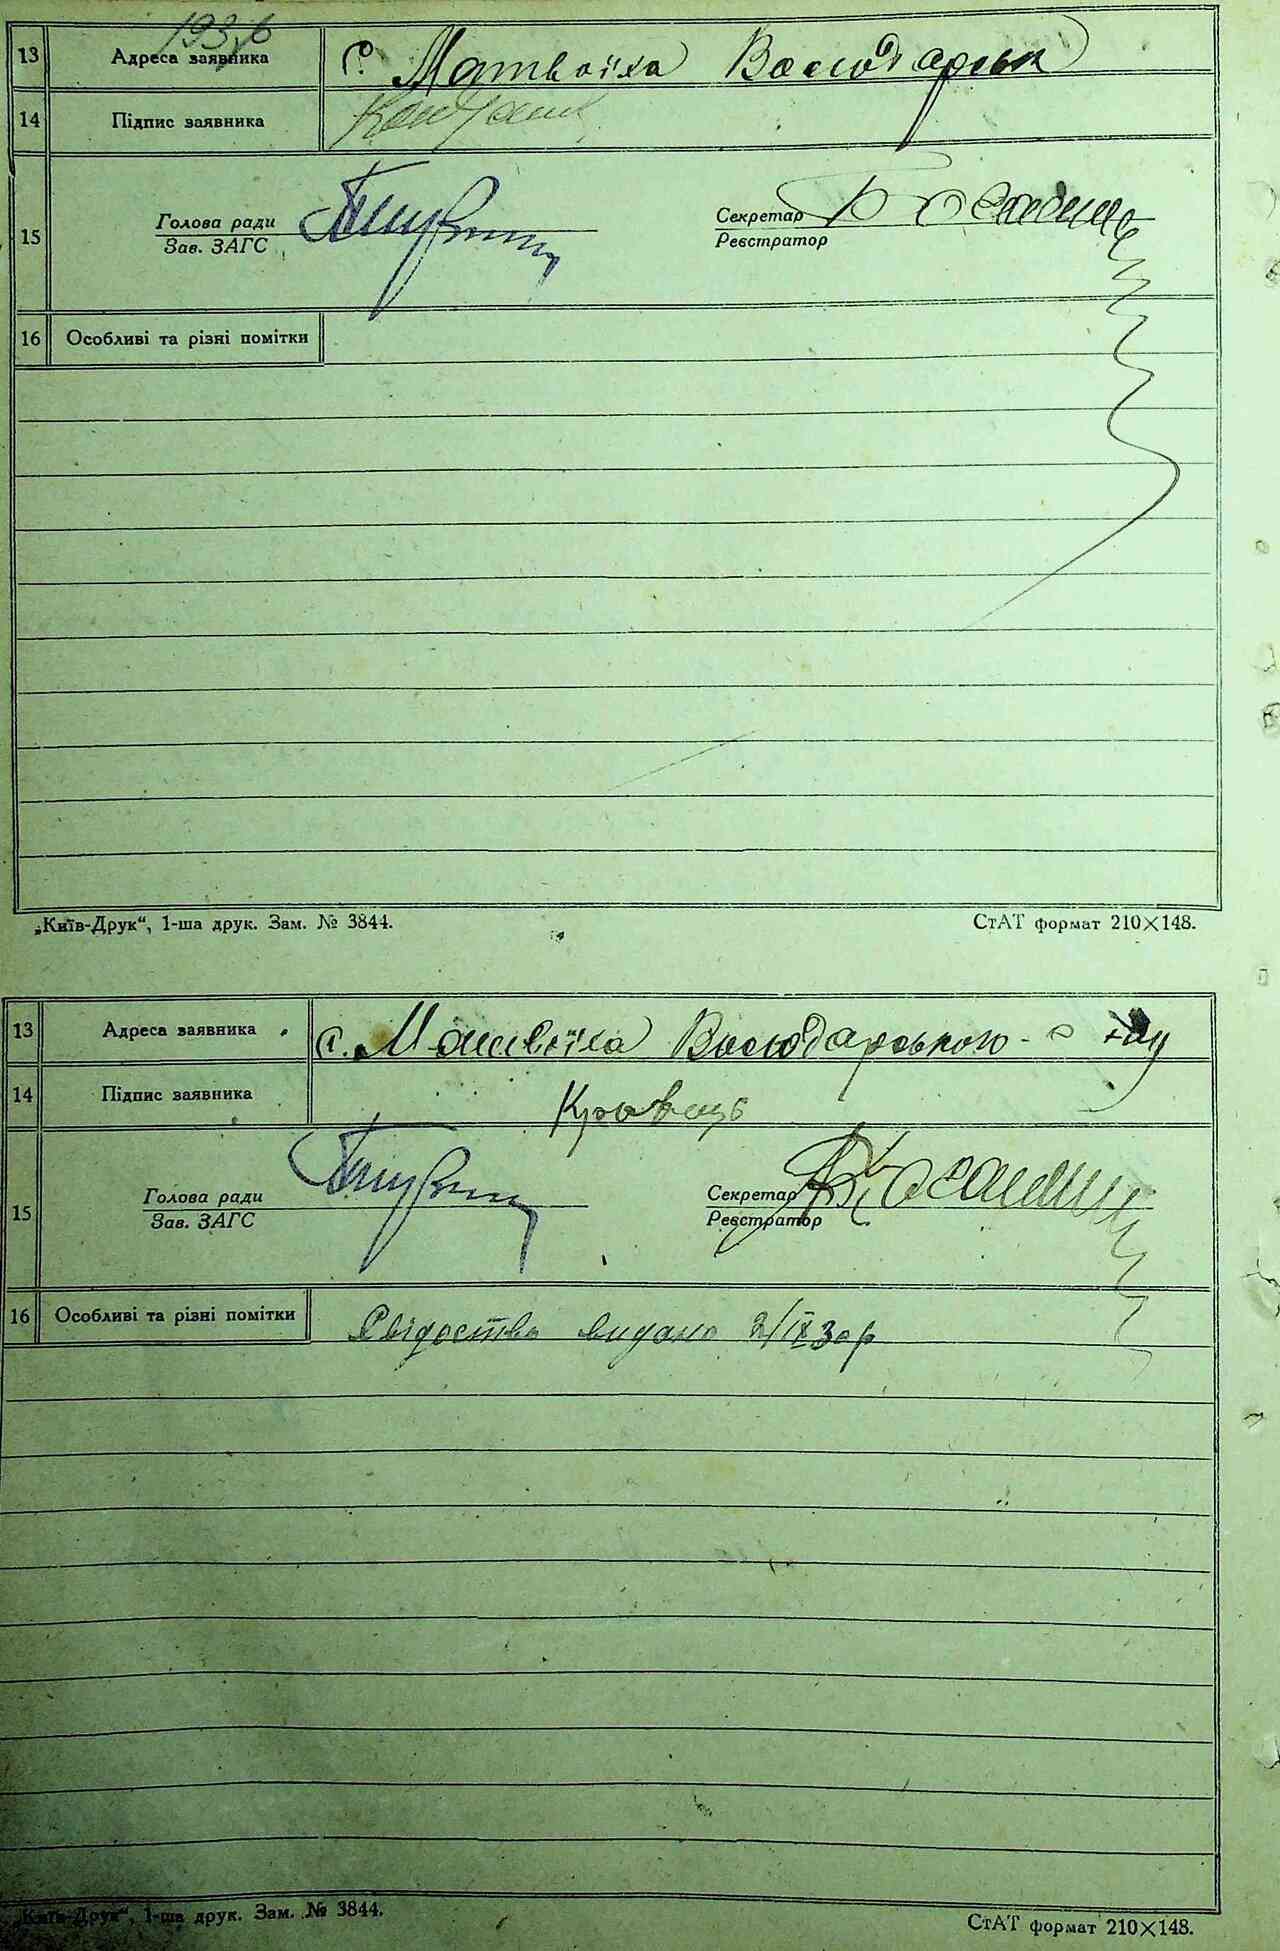 193
13 Адреса заявника с. Матвіїха Володарськ
14 Підпис заявника
15 Голова ради Секретар
Зав. ЗАГС Реєстратор
16 Особливі та різні помітки
„Київ-Друк“, 1-ша друк. Зам. № 3844. СтАТ формат 210×148.
13 Адреса заявника с. Матвіїха Володарського р-ну
14 Підпис заявника Кравець
15 Голова ради Секретар
Зав. ЗАГС Реєстратор
16 Особливі та різні помітки Свідоство видано 2/IX 30 р
„Київ-Друк“, 1-ша друк. Зам. № 3844. СтАТ формат 210×148.